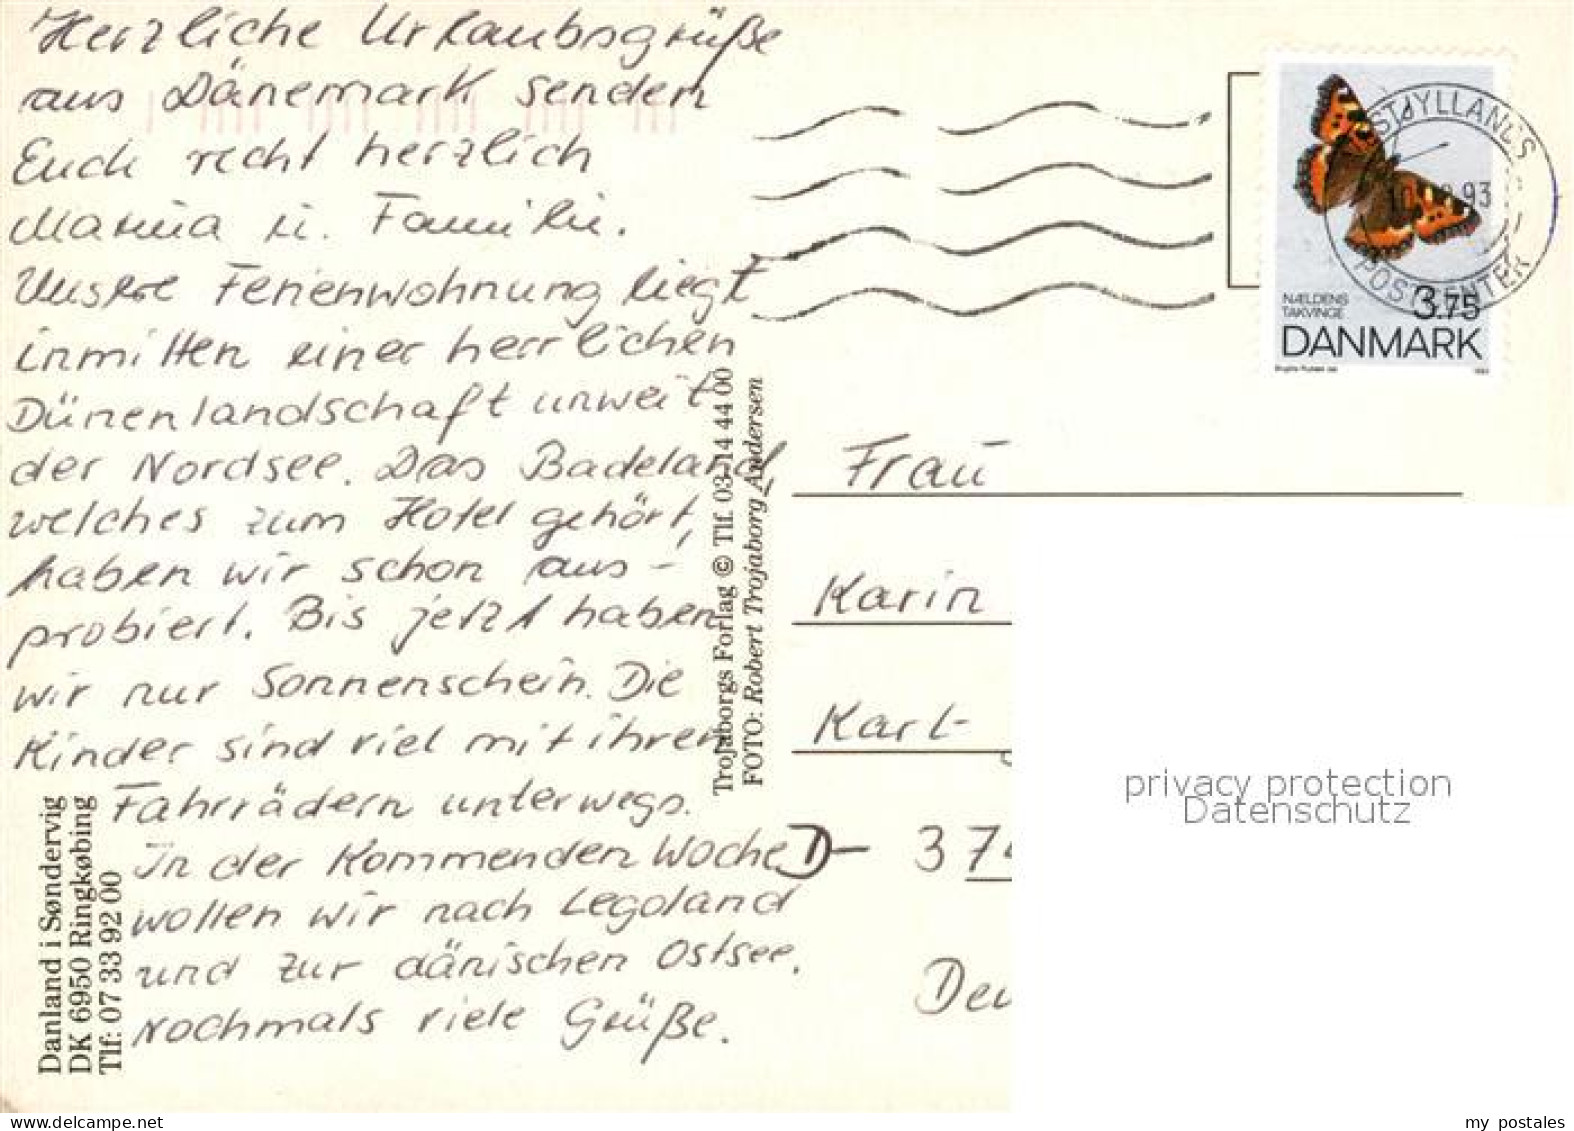 Herzliche Urlaubsgrüße
aus Dänemark senden
Euch recht herzlich
Marina u. Familie.
Unsere Ferienwohnung liegt
inmitten einer herrlichen
Dünenlandschaft unweit
der Nordsee. Das Badeland,
welches zum Hotel gehört,
haben wir schon aus-
probiert. Bis jetzt haben
wir nur Sonnenschein. Die
Kinder sind viel mit ihren
Fahrrädern unterwegs.
In der kommenden Woche
wollen wir nach Legoland
und zur dänischen Ostsee.
Nochmals viele Grüße.
Danland i Søndervig
DK 6950 Ringkøbing
Tlf: 07 33 92 00
Trojaborgs Forlag © Tlf. 03 14 44 00
FOTO: Robert Trojaborg Andersen
STJYLLANDS
POSTCENTER
93
NÆLDENS
TAKVINGE
3.75
DANMARK
Frau
Karin
Karl-
D- 37
Deu
privacy protection
Datenschutz
my postales